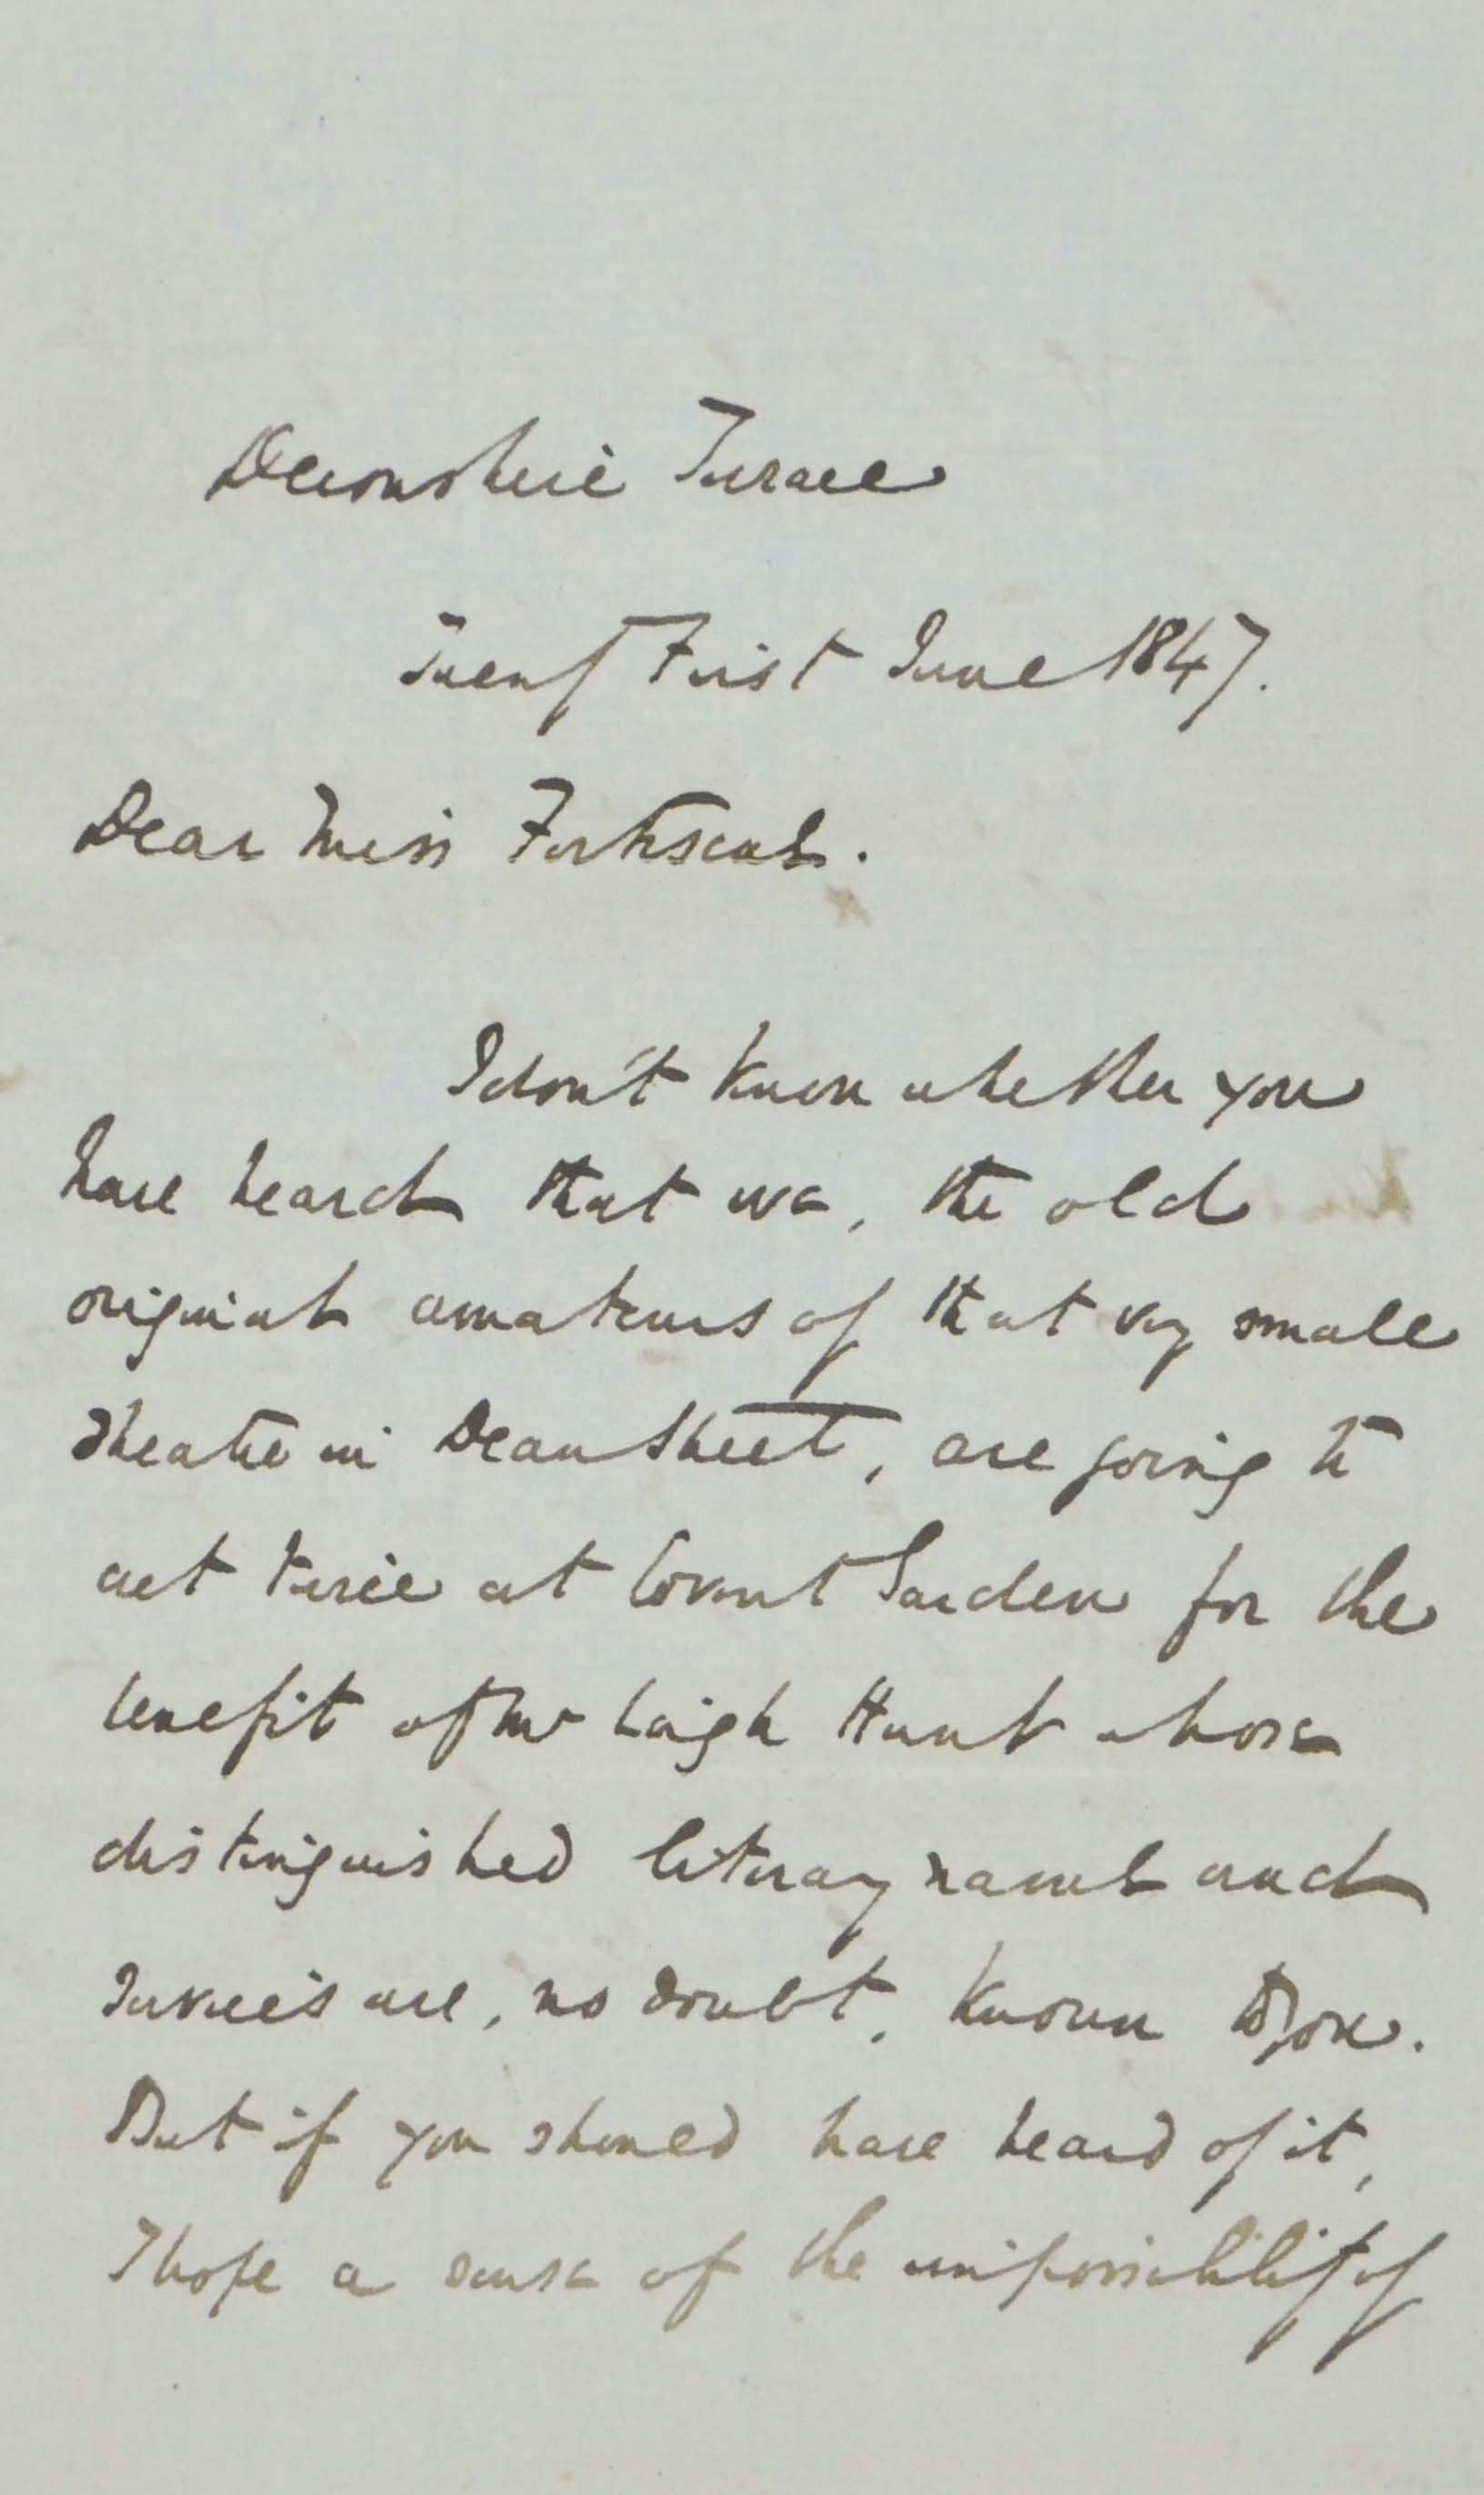 Devonshire Terrace
Twenty First June 1847.
Dear Miss Fortescue.
I don't know whether you
have heard that we, the old
original amateurs of that very small
Theatre in Dean Street, are going to
act twice at Covent Garden for the
benefit of Mr Leigh Hunt whose
distinguished literary name and
services are, no doubt, known to you.
But if you should have heard of it,
I hope a sense of the impossibility of